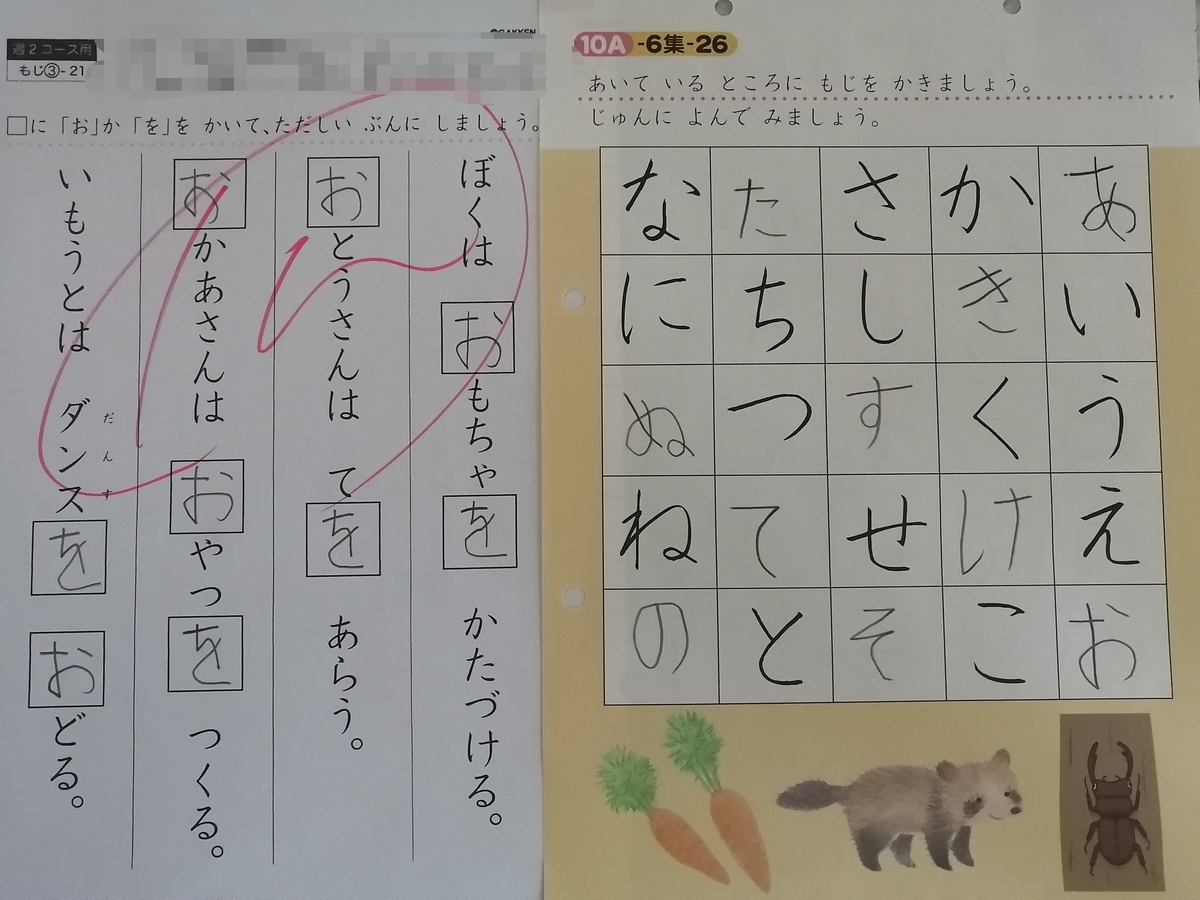 ©GAKKEN
週2コース用
もじ③-21
□に「お」か「を」を かいて、ただしい ぶんに しましょう。
ぼくは おもちゃを かたづける。
おとうさんは てを あらう。
おかあさんは おやつを つくる。
いもうとは ダンスを おどる。
だんす
10A-6集-26
あいて いる ところに もじを かきましょう。
じゅんに よんで みましょう。
あいうえお
かきくけこ
さしすせそ
たちつてと
なにぬねの